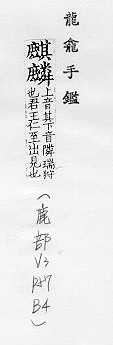 龍龕手鑑
麒麟
上音其下音隣瑞狩
也君王仁至出見也
(鹿部
V3
P47
B4)